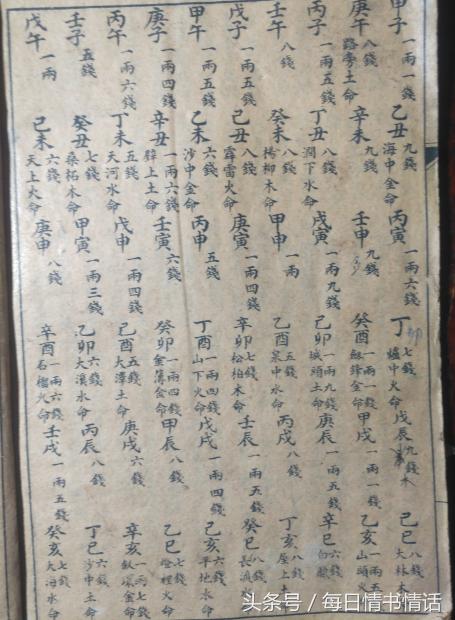 甲子 一兩一錢 乙丑 九錢 海中金命 丙寅 一兩六錢 丁卯 七錢 爐中火命 戊辰 九錢 木 己巳 八錢 大林木
庚午 八錢 路旁土命 辛未 九錢 壬申 九錢 癸酉 一兩一錢 鋒金命 甲戌 一兩一錢 乙亥 一兩五 山頭火
丙子 一兩五錢 丁丑 八錢 澗下水命 戊寅 一兩九錢 己卯 一兩九錢 城頭土命 庚辰 一兩五錢 辛巳 六錢 白
壬午 八錢 癸未 八錢 楊柳木命 甲申 一兩 乙酉 五錢 泉中水命 丙戌 八錢 丁亥 八錢 屋上土
戊子 一兩五錢 己丑 八錢 霹雷火命 庚寅 一兩四錢 辛卯 七錢 松柏木命 壬辰 一兩五錢 癸巳 八錢 長流
甲午 一兩五錢 乙未 六錢 沙中金命 丙申 五錢 丁酉 一兩四錢 山下火命 戊戌 一兩四錢 己亥 六錢 平地水命
庚子 一兩四錢 辛丑 一兩六錢 辟上土命 壬寅 六錢 癸卯 一兩四錢 金簿金命 甲辰 八錢 乙巳 七錢 燈裡火命
丙午 一兩六錢 丁未 五錢 天河水命 戊申 一兩四錢 己酉 五錢 大澤土命 庚戌 六錢 辛亥 一兩七錢 釵環金命
壬子 五錢 癸丑 七錢 桑柘木命 甲寅 一兩三錢 乙卯 六錢 大溪水命 丙辰 八錢 丁巳 六錢 沙中土命
戊午 一兩 己未 六錢 天上火命 庚申 八錢 辛酉 一兩六錢 石榴火命 壬戌 一兩五錢 癸亥 七錢 大海水命
头条号 / 每日情书情话